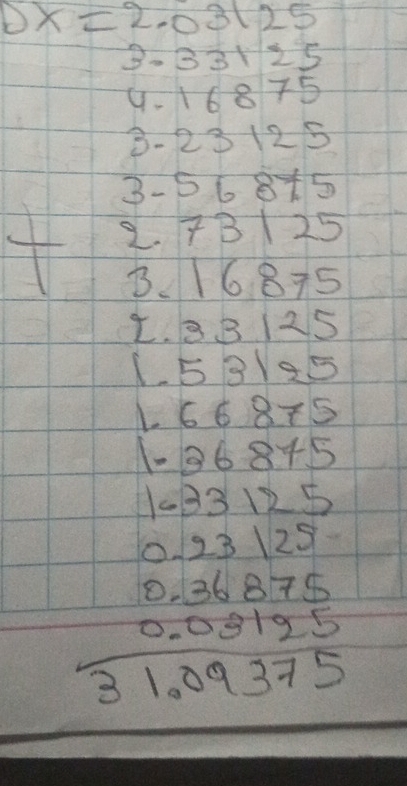 DX = 2.03125
3.33125
4.16875
3.23125
3.56875
+ 2.73125
3.16875
2.33125
1.53125
1.66875
1.36875
1.33125
0.23125
0.36875
0.03125
31.09375